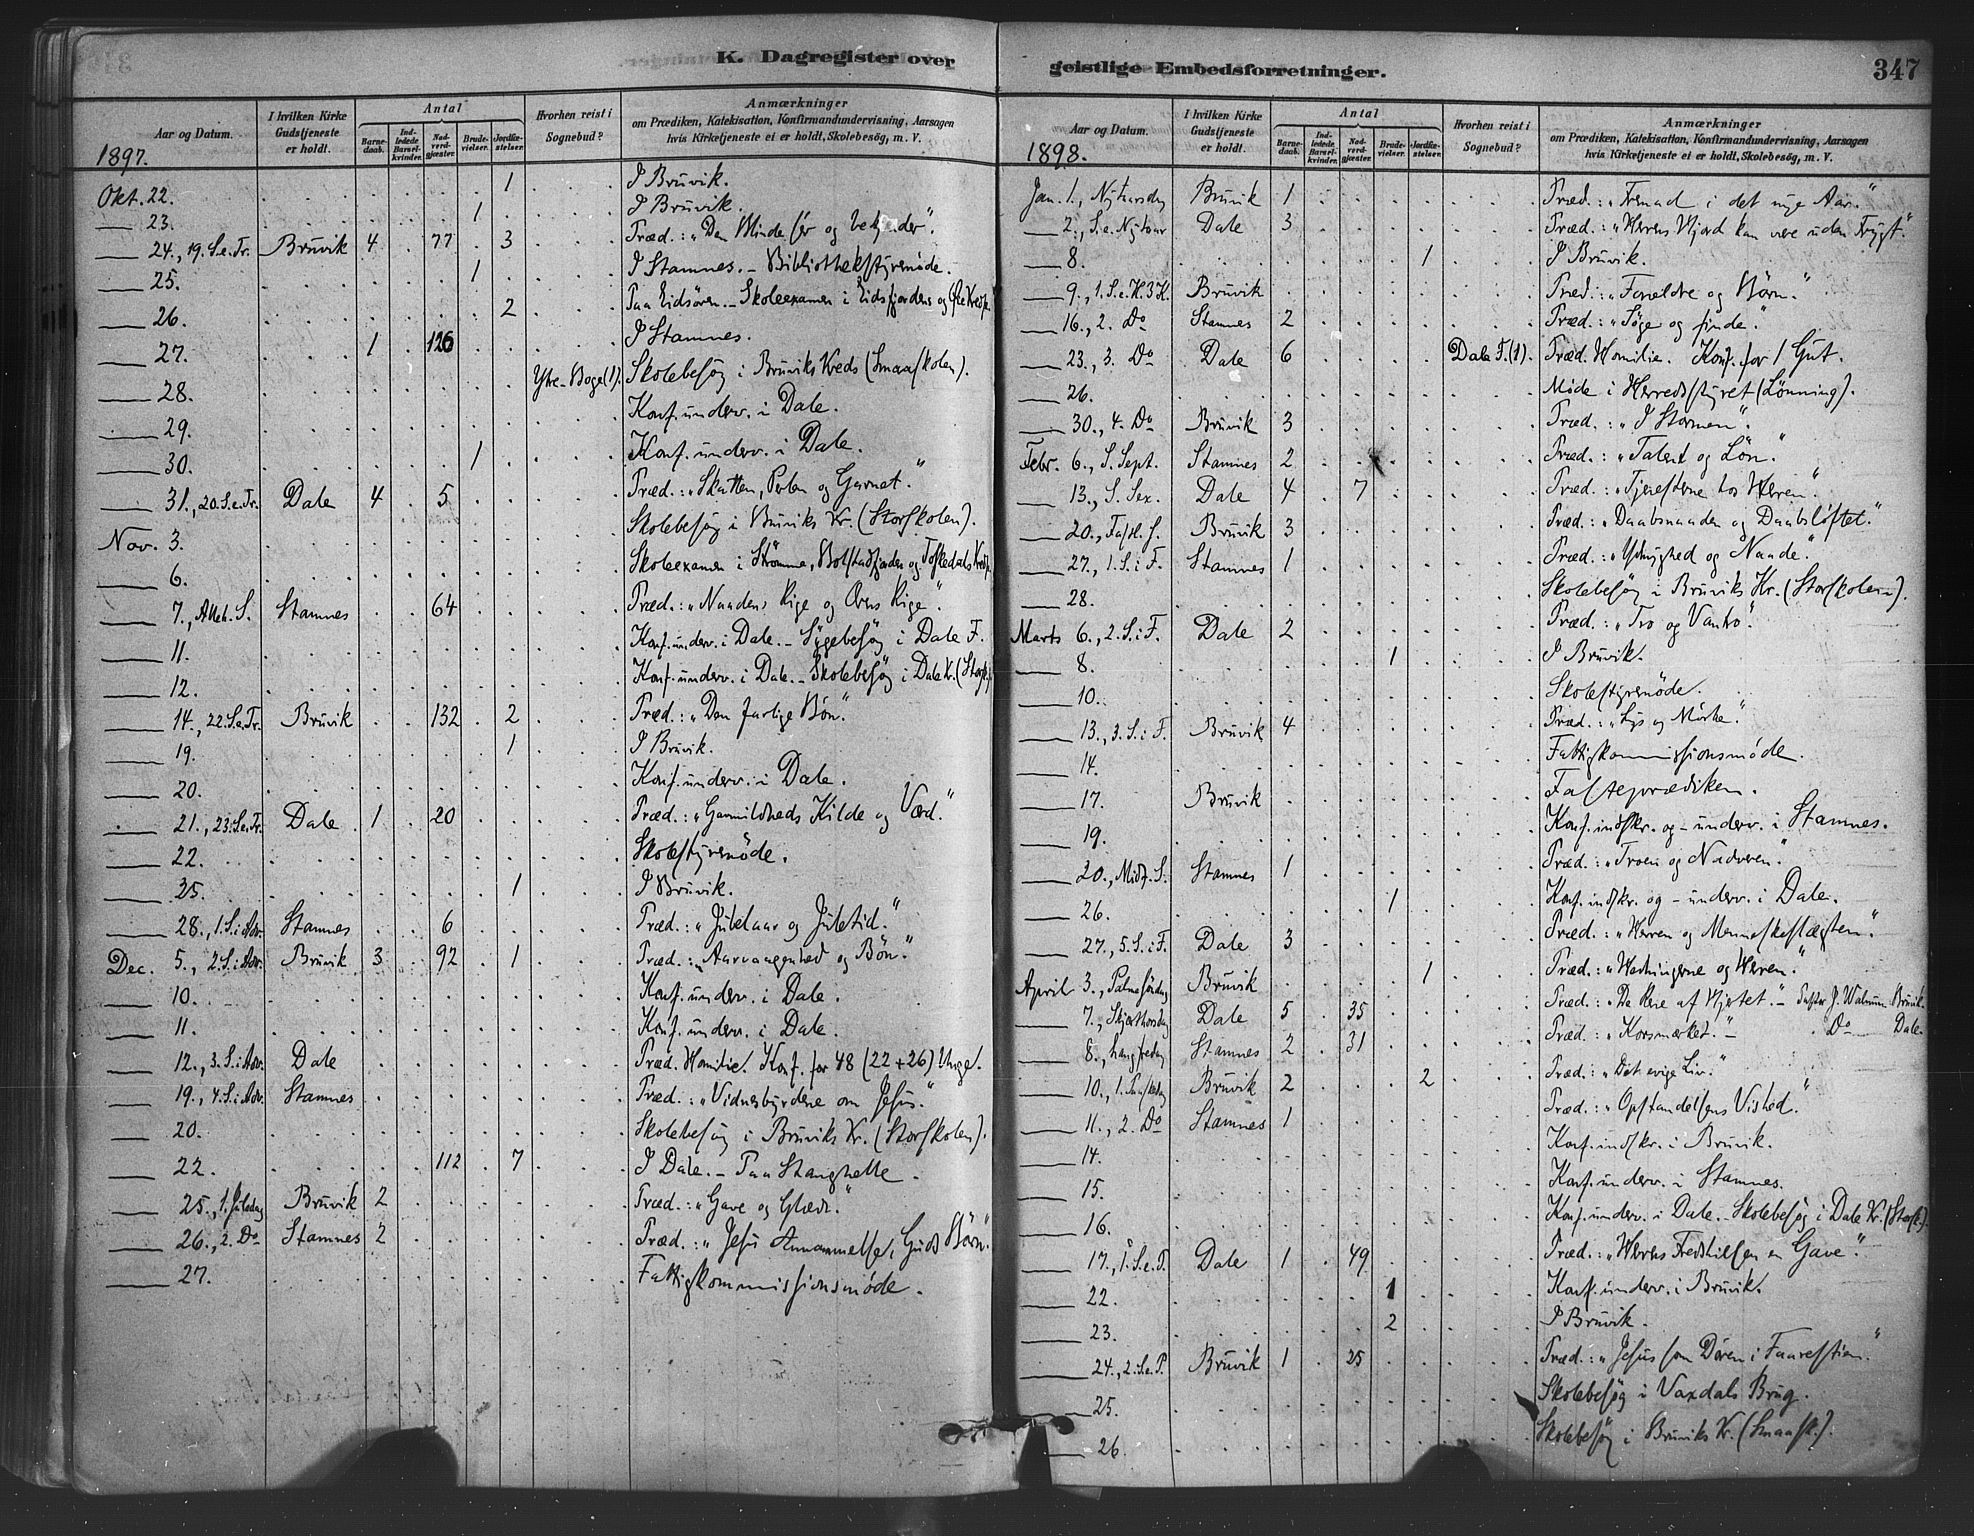 K. Dagregister over
Aar og Datum. I hvilken Kirke Gudstjeneste er holdt. Antal Barnedaab. Indledede Barselkvinder. Nadverdgjæster. Brudevielser. Jordfæstelser. Hvorhen reist i Sognebud? Anmærkninger om Prædiken, Katekisation, Konfirmandundervisning, Aarsagen hvis Kirketjeneste ei er holdt, Skolebesög, m. V.
1897.
Okt. 22. 1 I Bruvik.
23. 1 I Bruvik.
24., 19. S. e. Tr. Bruvik 4 77 3 Præd.: „Den blinde ser og bekjender".
25. 1 I Stamnes. – Bibliothekstyremöde.
26. 2 Paa Eidsören. – Skoleexamen i Eidsfjordens og
27. 1 126 I Stamnes.
28. Ytre-Boge (1). Skolebesög i Bruviks Kreds (Smaaskolen).
29. Konf. underv. i Dale.
30. 1 Konf. underv. i Dale.
31., 20. S. e. Tr. Dale 4 5 Præd.: „Skatten, Perlen og Garnet."
Nov. 3. Skolebesög i Bruviks Kr. (Storskolen).
6. Skoleexamen i Strömme, Bolstadfjorden og
7., Alleh. S. Stamnes 64 Præd.: „Naadens Rige og Ærens Rige".
11. Konf. underv. i Dale. – Sygebesög i Dale F.
12. Konf. underv. i Dale. – Skolebesög i Dale Kr. (Storsk.)
14., 22. S. e. Tr. Bruvik 132 2 Præd.: „Den farlige Bön".
19. 1 I Bruvik.
20. Konf. underv. i Dale.
21., 23. S. e. Tr. Dale 1 20 Præd.: „Gavmildheds Kilde og Værd."
22. Skolestyremöde.
25. 1 I Bruvik.
28., 1. S. i Adv. Stamnes 6 Præd.: „Jubelaar og Juletid."
Dec. 5., 2. S. i Adv. Bruvik 3 92 1 Præd.: „Aarvaagenhed og Bön".
10. Konf. underv. i Dale.
11. Konf. underv. i Dale.
12., 3. S. i Adv. Dale Præd. Homilie. Konf. for 48 (22+26) Unge.
19., 4. S. i Adv. Stamnes Præd.: „Vidnesbyrdene om Jesus."
20. Skolebesög i Bruviks Kr. (Storskolen).
22. 112 7 I Dale. – Paa Stanghelle.
25., 1. Juledag Bruvik 2 Præd.: „Gave og Glæde."
26., 2. Do Stamnes 2 Præd.: „Jesu Annammelse, Guds Börn."
27. Fattigkommissionsmöde.
geistlige Embedsforretninger. 347
Aar og Datum. I hvilken Kirke Gudstjeneste er holdt. Antal Barnedaab. Indledede Barselkvinder. Nadverdgjæster. Brudevielser. Jordfæstelser. Hvorhen reist i Sognebud? Anmærkninger om Prædiken, Katekisation, Konfirmandundervisning, Aarsagen hvis Kirketjeneste ei er holdt, Skolebesög, m. V.
1898.
Jan. 1., Nytaarsdag Bruvik 1 Præd.: „Fremad i det nye Aar."
2., S. e. Nytaar Dale 3 Præd.: „Herrens Hjord kan være uden Frygt".
8. 1 I Bruvik.
9., 1. S. e. H. 3 K. Bruvik Præd.: „Forældre og Börn."
16., 2. Do Stamnes 2 Præd.: „Söge og finde."
23., 3. Do Dale 6 Dale F. (1). Præd. Homilie. Konf. for 1 Gut.
26. Möde i Herredsstyret (Lönning).
30., 4. Do Bruvik 3 Præd.: „I Stormen".
Febr. 6., S. Sept. Stamnes 2 Præd.: „Talent og Lön."
13., S. Sex. Dale 4 7 Præd.: „Tjenesterne hos Herren".
20., Fastel. S. Bruvik 3 Præd.: „Daabsnaaden og Daabslöftet."
27., 1. S. i F. Stamnes 1 Præd.: „Ydmyghed og Naade".
28. Skolebesög i Bruviks Kr. (Storskolen).
Marts 6., 2. S. i F. Dale 2 Præd.: „Tro og Vantro".
8. 1 I Bruvik.
10. Skolestyremöde.
13., 3. S. i F. Bruvik 4 Præd.: „Lys og Mörke".
14. Fattigkommissionsmöde.
17. Bruvik Fasteprædiken.
19. Konf. indskr. og – underv. i Stamnes.
20., Midf. S. Stamnes 1 Præd.: „Troen og Nadveren".
26. 1 Konf. indskr. og – underv. i Dale.
27., 5. S. i F. Dale 3 Præd.: „Herren og Menneskeslægten".
April 3., Palmesöndag Bruvik 1 Præd.: „Hedningerne og Herren."
7., Skjærthorsdag Dale 5 35 Præd.: „De Rene af Hjertet." – Bruvik.
8., Langfredag Stamnes 2 31 Præd.: „Korsmærket." – Do Dale.
10., 1. Paaskedag Bruvik 2 2 Præd.: „Det evige Liv."
11., 2. Do Stamnes 1 Præd.: „Opstandelsens Vished."
14. Konf. indskr. i Bruvik.
15. Konf. underv. i Stamnes.
16. Konf. underv. i Dale. – Skolebesög i Dale Kr. (Storsk.).
17., 1. S. e. P. Dale 1 49 Præd.: „Herrens Fredshilsen en Gave".
22. 1 Konf. underv. i Bruvik.
23. 2 I Bruvik.
24., 2. S. e. P. Bruvik 1 25 Præd.: „Jesus som Dören i Faarestien."
25. Skolebesög i Vaxdals Brug.
26. Skolebesög i Bruviks Kr. (Smaask.).